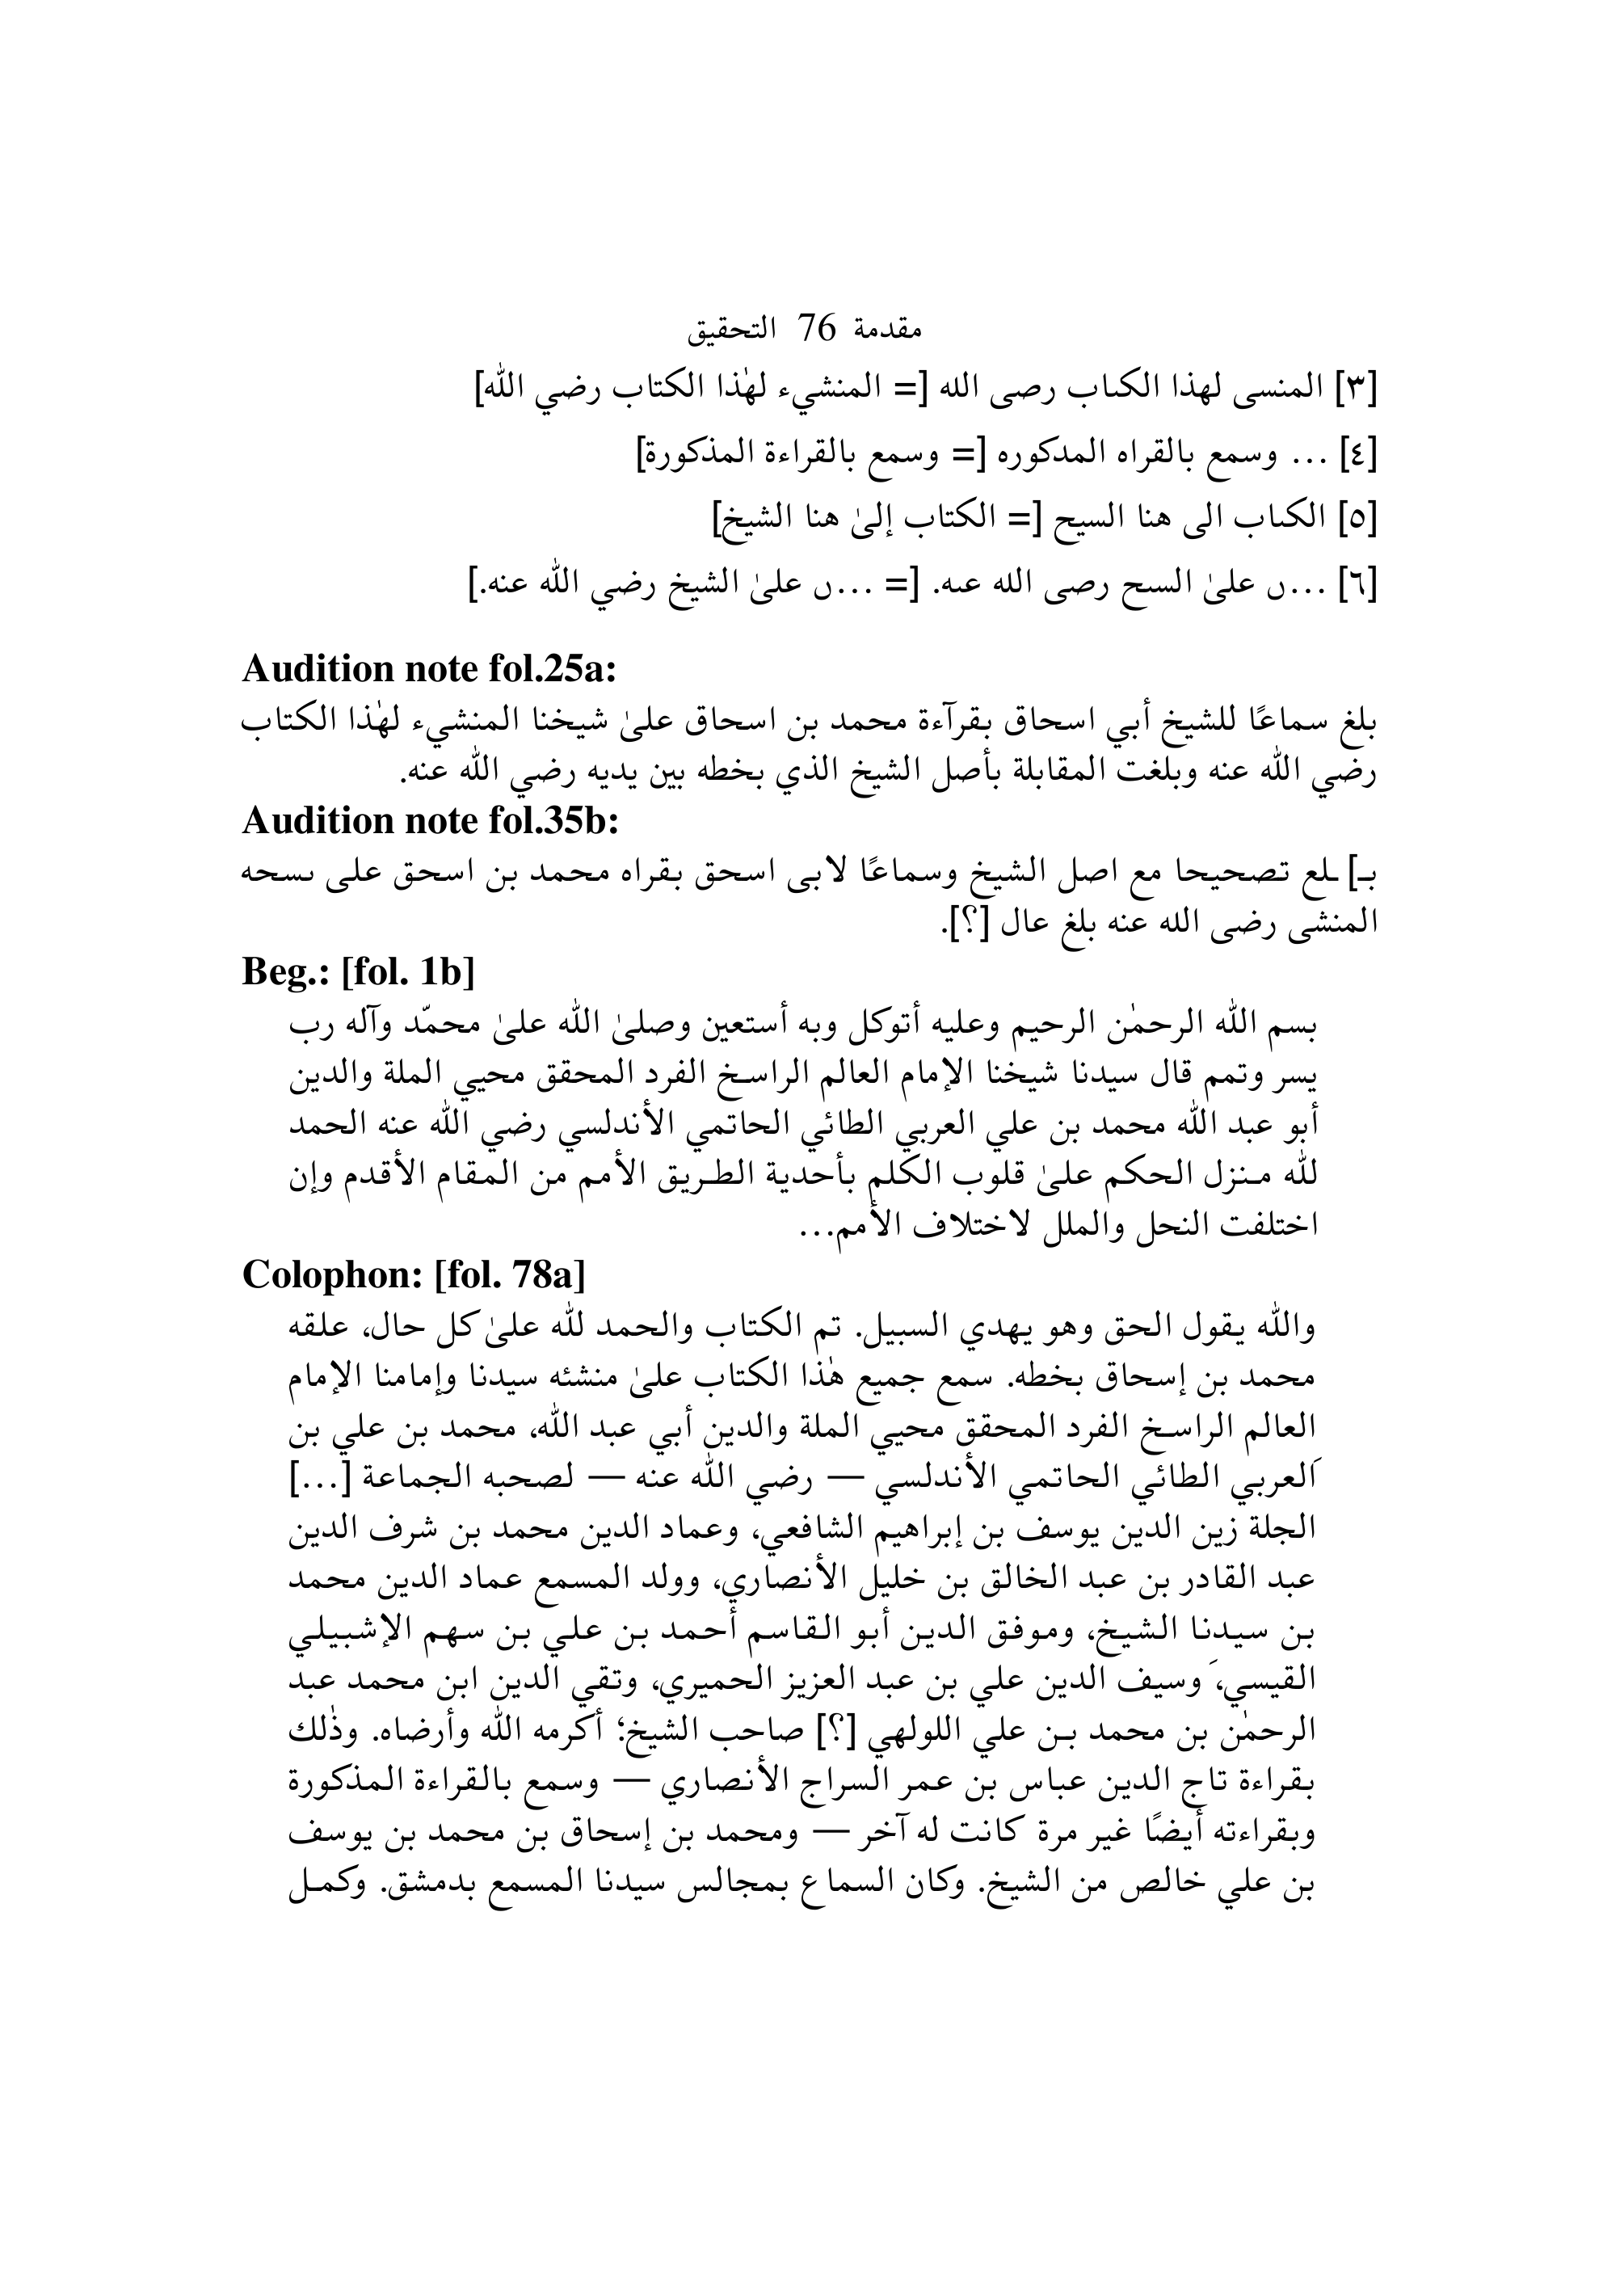 مقدمة 76 التحقيق
[٣] المنسى لهذا الكىاب رصى الله [= المنشيء لهٰذا الكتاب رضي الله]
[٤] ... وسمع بالقراه المدكوره [= وسمع بالقراءة المذكورة]
[٥] الكىاب الى هنا السيح [= الكتاب إلىٰ هنا الشيخ]
[٦] ...ں علىٰ السىح رصى الله عىه. [= ...ں علىٰ الشيخ رضي الله عنه.]
Audition note fol.25a:
بلغ سماعًا للشيخ أبي اسحاق بقرآءة محمد بن اسحاق علىٰ شيخنا المنشيء لهٰذا الكتاب
رضي الله عنه وبلغت المقابلة بأصل الشيخ الذي بخطه بين يديه رضي الله عنه.
Audition note fol.35b:
بـ] ـلع تصحيحا مع اصل الشيخ وسماعًا لابى اسحق بقراه محمد بن اسحق على ىسحه
المنشى رضى الله عنه بلغ عال [؟].
Beg.: [fol. 1b]
بسم الله الرحمٰن الرحيم وعليه أتوكل وبه أستعين وصلىٰ الله علىٰ محمّد وآله رب
يسر وتمم قال سيدنا شيخنا الإمام العالم الراسخ الفرد المحقق محيي الملة والدين
أبو عبد الله محمد بن علي العربي الطائي الحاتمي الأندلسي رضي الله عنه الحمد
لله منزل الحكم علىٰ قلوب الكلم بأحدية الطريق الأمم من المقام الأقدم وإن
اختلفت النحل والملل لاختلاف الأمم...
Colophon: [fol. 78a]
والله يقول الحق وهو يهدي السبيل. تم الكتاب والحمد لله علىٰ كل حال، علقه
محمد بن إسحاق بخطه. سمع جميع هٰذا الكتاب علىٰ منشئه سيدنا وإمامنا الإمام
العالم الراسخ الفرد المحقق محيي الملة والدين أبي عبد الله، محمد بن علي بن
َالعربي الطائي الحاتمي الأندلسي — رضي الله عنه — لصحبه الجماعة [...]
الجلة زين الدين يوسف بن إبراهيم الشافعي، وعماد الدين محمد بن شرف الدين
عبد القادر بن عبد الخالق بن خليل الأنصاري، وولد المسمع عماد الدين محمد
بن سيدنا الشيخ، وموفق الدين أبو القاسم أحمد بن علي بن سهم الإشبيلي
القيسي،َ وسيف الدين علي بن عبد العزيز الحميري، وتقي الدين ابن محمد عبد
الرحمٰن بن محمد بن علي اللولهي [؟] صاحب الشيخ؛ أكرمه الله وأرضاه. وذٰلك
بقراءة تاج الدين عباس بن عمر السراج الأنصاري — وسمع بالقراءة المذكورة
وبقراءته أيضًا غير مرة كانت له آخر — ومحمد بن إسحاق بن محمد بن يوسف
بن علي خالص من الشيخ. وكان السماع بمجالس سيدنا المسمع بدمشق. وكمل